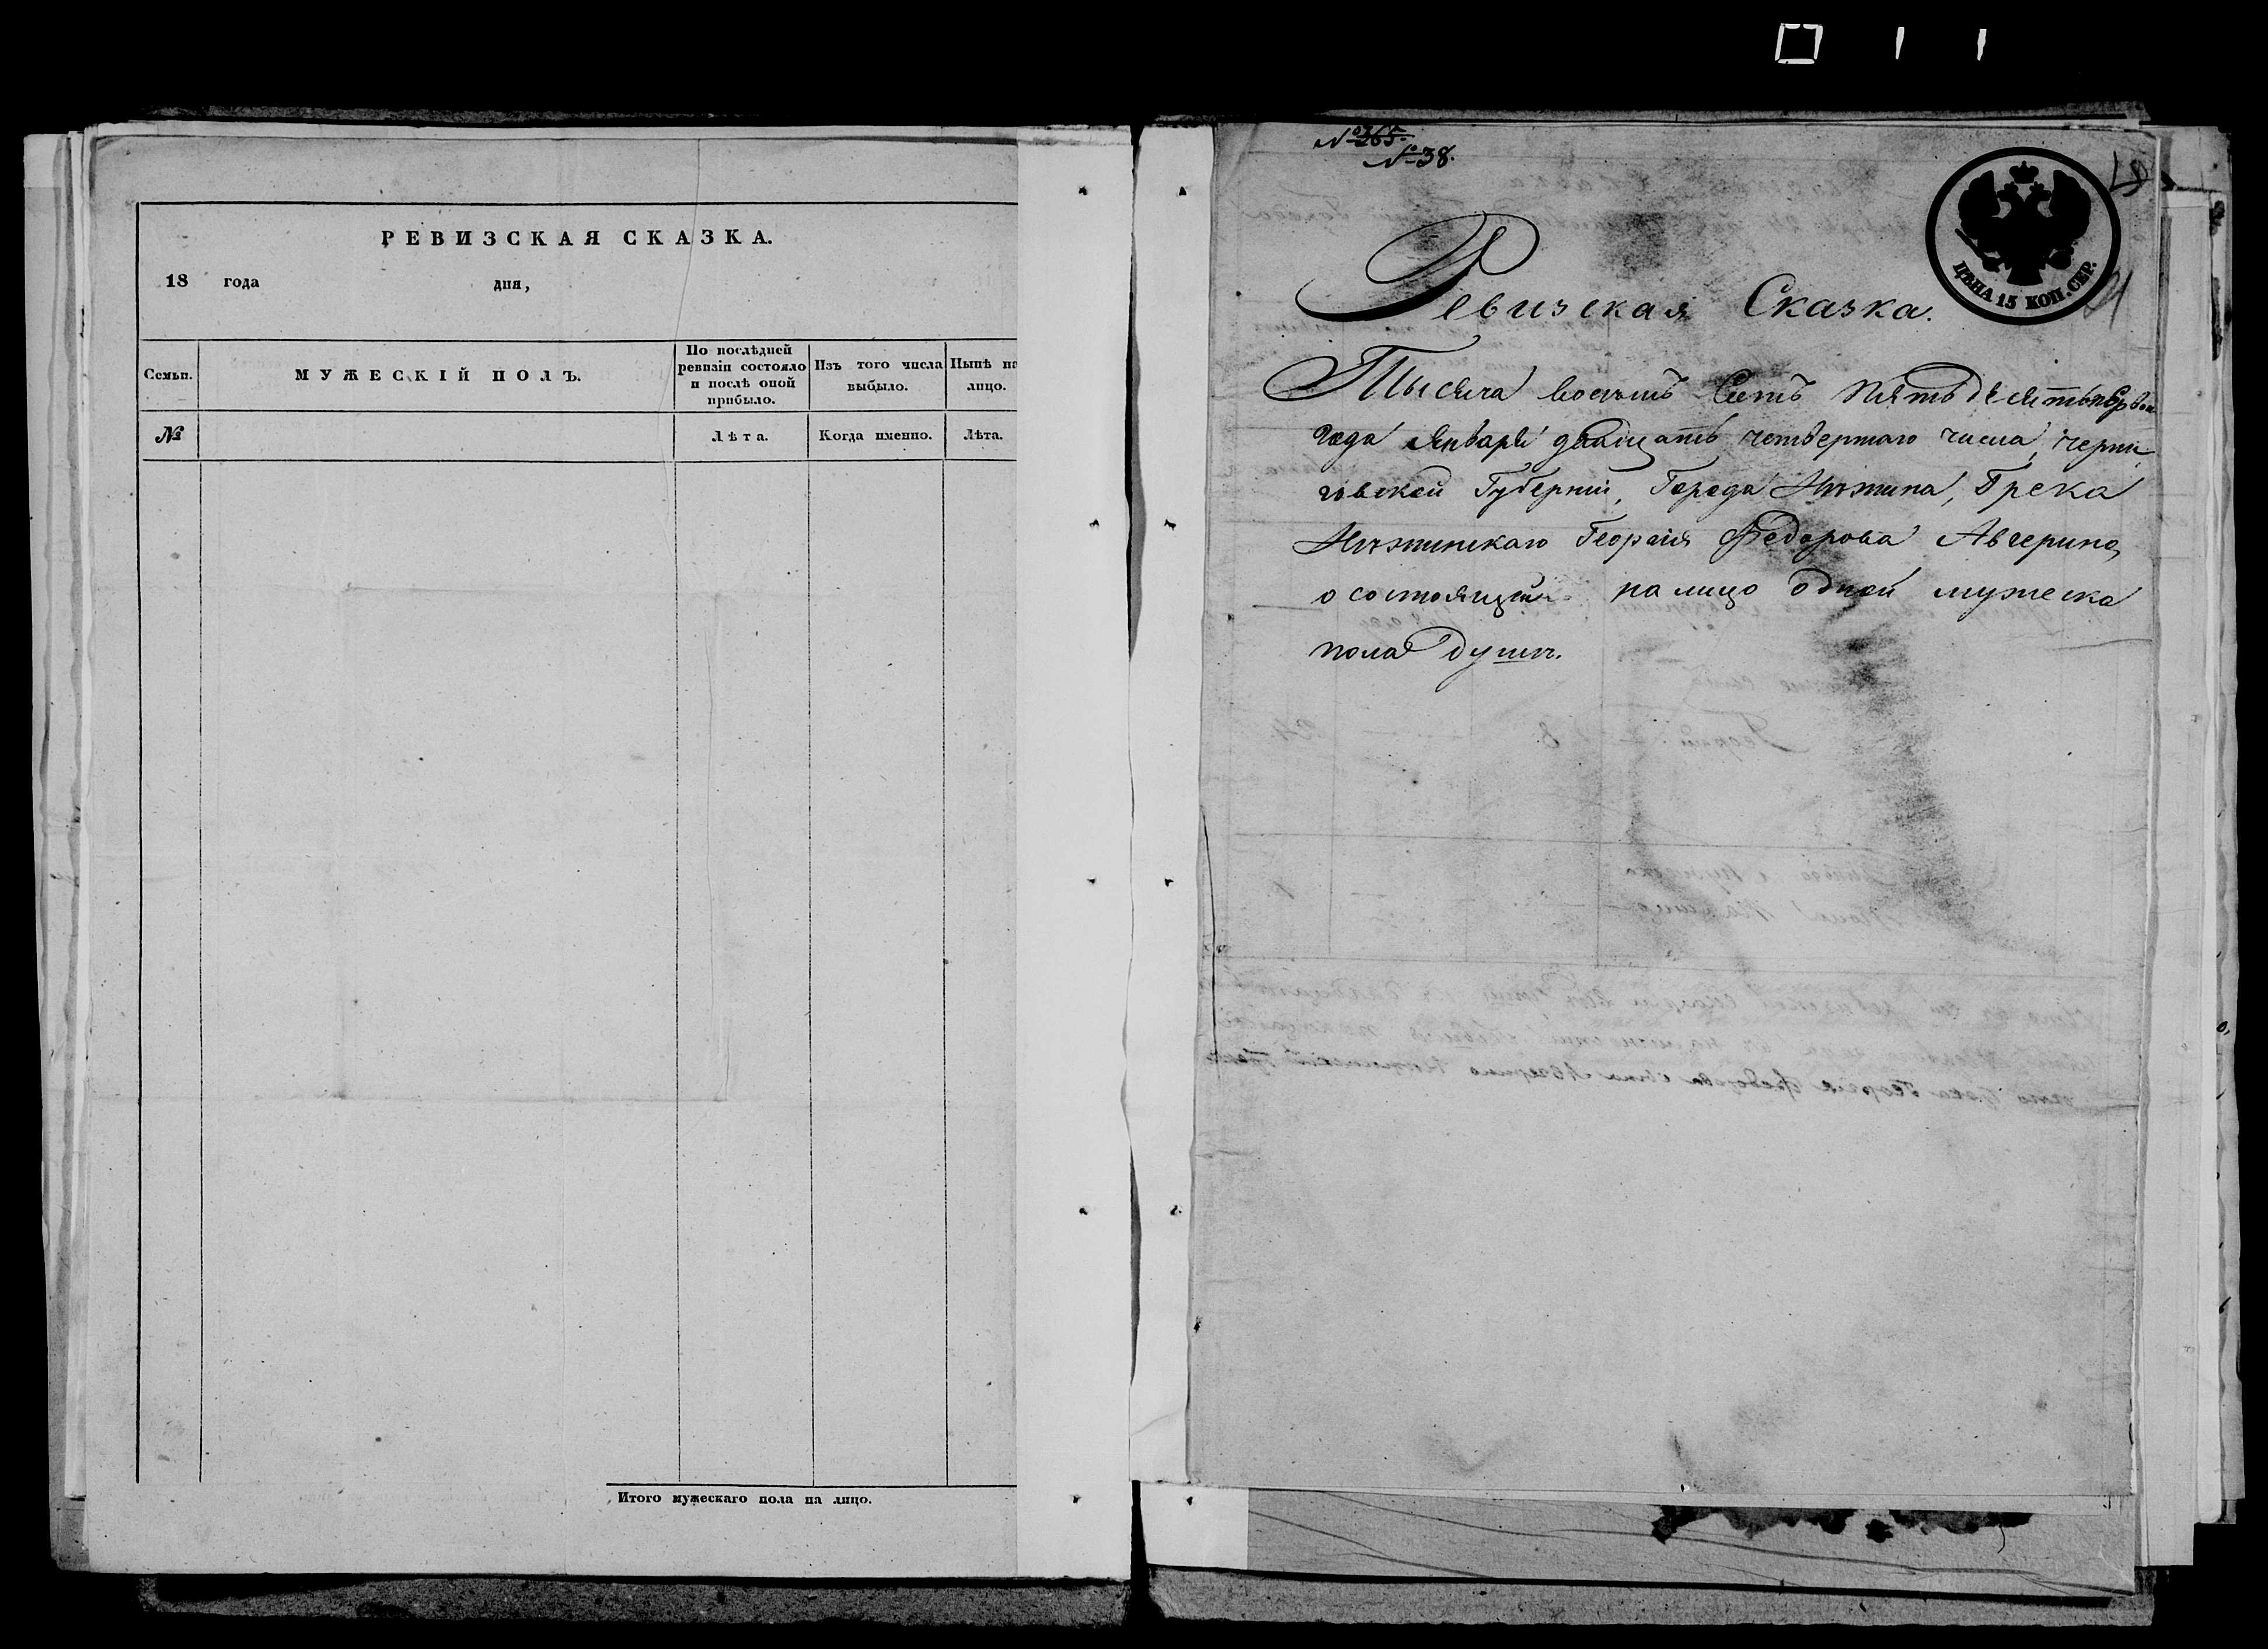 РЕВИЗСКАЯ СКАЗКА.
18 года дня,
Семьи. МУЖЕСКІЙ ПОЛЪ. По послѣдней ревизіи состояло и послѣ оной прибыло. Изъ того числа выбыло. Нынѣ на лицо.
№ Лѣта. Когда именно. Лѣта.
Итого мужескаго пола на лицо.
№ 265.
№ 38.
ЦѢНА 15 КОП. СЕР.
Ревизская Сказка.
Тысяча восемь Сотъ пятьдесятъ первого
года Января двадцать четвертаго числа, Черни
говской Губерніи, Города Нѣжина, Грека
Нѣжинскаго Георгія Федорова Авгерино,
о состоящей на лицо одной мужеска
пола душѣ.